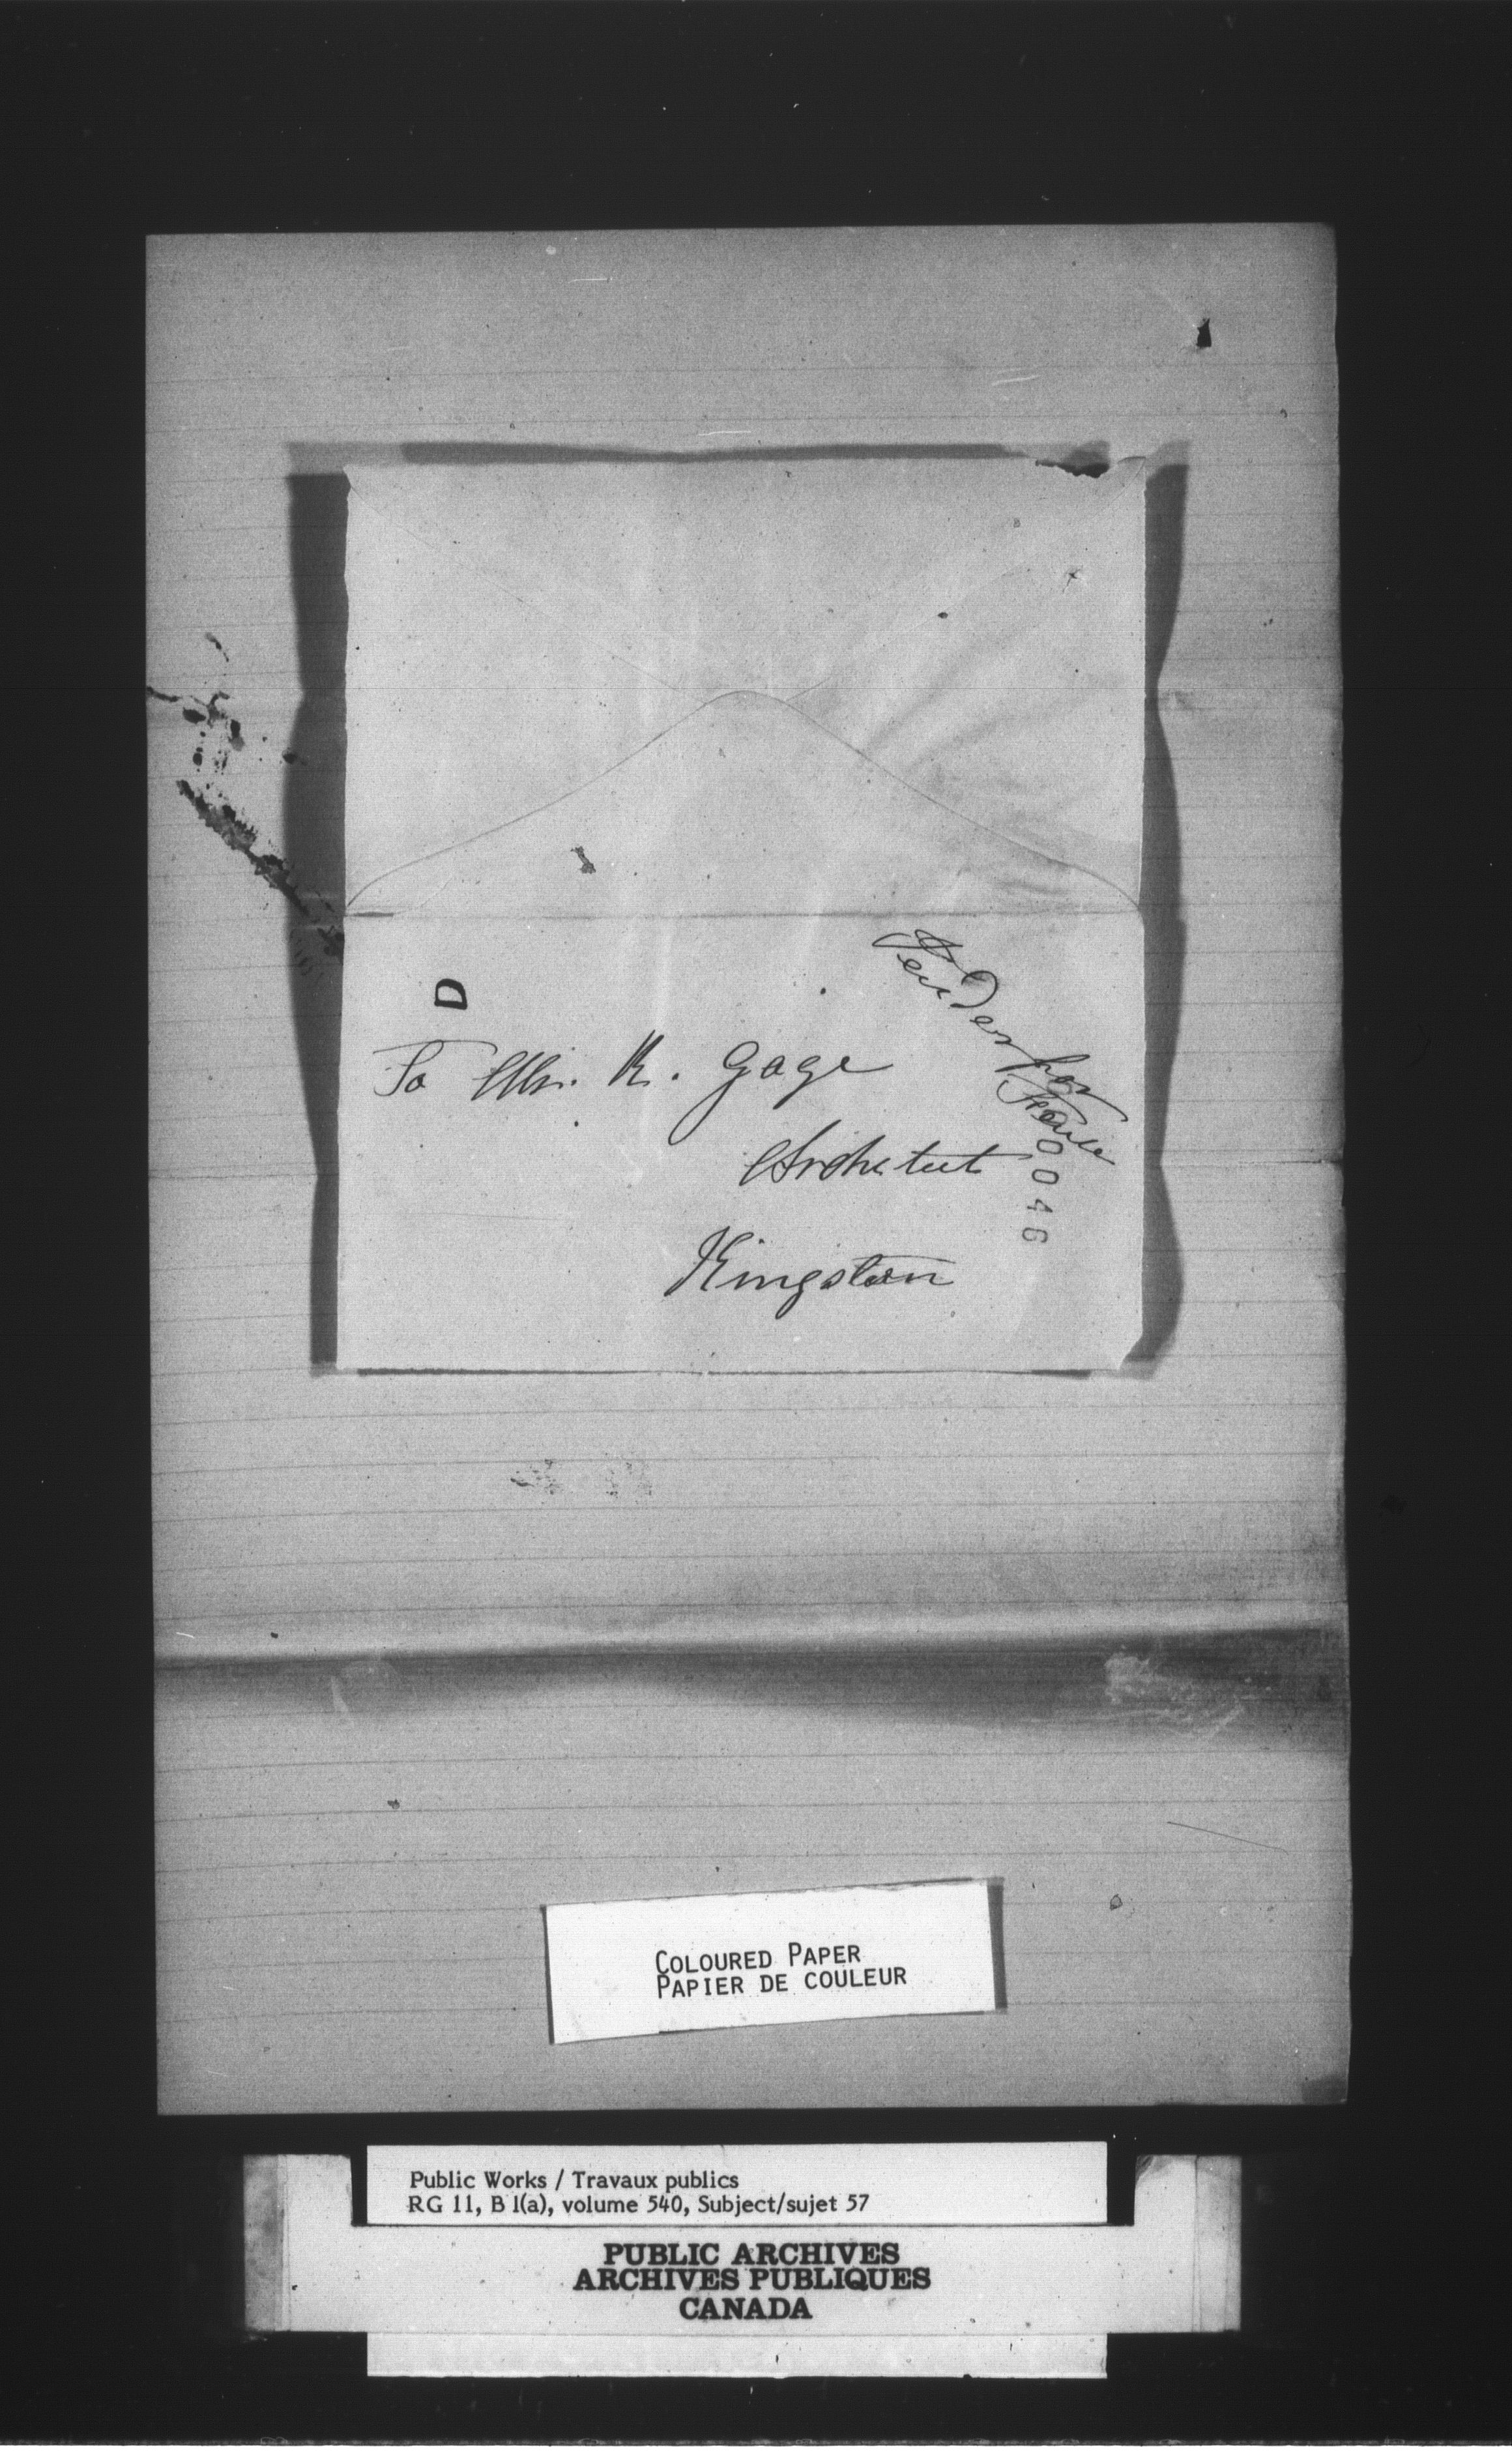 D
Tender for
Fence
To Mr. R. Gage
Architect
Kingston
0046
COLOURED PAPER
PAPIER DE COULEUR
Public Works / Travaux publics
RG 11, B 1(a), volume 540, Subject/sujet 57
PUBLIC ARCHIVES
ARCHIVES PUBLIQUES
CANADA